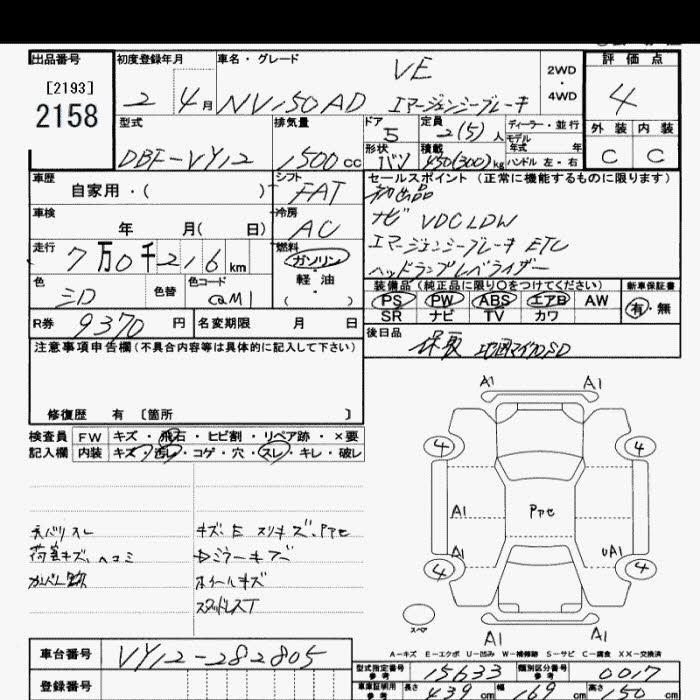 出品番号 初度登録年月 車名・グレード 評価点
[2193]
2158
2 4月 NV150AD VE エマージェンシーブレーキ 2WD・4WD 4
型式 排気量 ドア 定員 ディーラー・並行 外装 内装
DBF-VY12 1500cc 5 2(5)人 モデル年式 年 C C
形状 バン 積載 450(300)kg ハンドル 左・右
車歴 自家用・( ) シフト FAT セールスポイント (正常に機能するものに限ります)
初出品
車検 年 月( 日) 冷房 AC ナビ VDC LDW
走行 7万0千216km 燃料 ガソリン・軽油・( ) エマージェンシーブレーキ ETC
ヘッドランプレベライザー
色 色替 色コード 装備品 (純正品に限り○をつけてください) 新車保証書
PS PW ABS エアB AW 有・無
SR ナビ TV カワ
R券 9370円 名変期限 月 日
後日品 保夏 地図マイクロSD
注意事項申告欄 (不具合内容等は具体的に記入して下さい)
修復歴 有 [箇所 ]
検査員 FW キズ・飛石・ヒビ割・リペア跡・×要
記入欄 内装 キズ・汚レ・コゲ・穴・スレ・キレ・破レ
天バリスレ キズ、E スリキズ、Pアセ
荷室キズ、ヘコミ ドミラーキズ
ホイールキズ
スタッドレスT
A1 A1
4 4
A1 Pアセ
A1 UA1
4 4
スペア A1 A1
A-キズ E-エクボ U-凹み W-補修跡 S-サビ C-腐食 XX-交換済
車台番号 VY12-282805
型式指定番号 参考 15633 類別区分番号 参考 0017
登録番号 車庫証明用 参考 長さ 439cm 幅 169cm 高さ 150cm